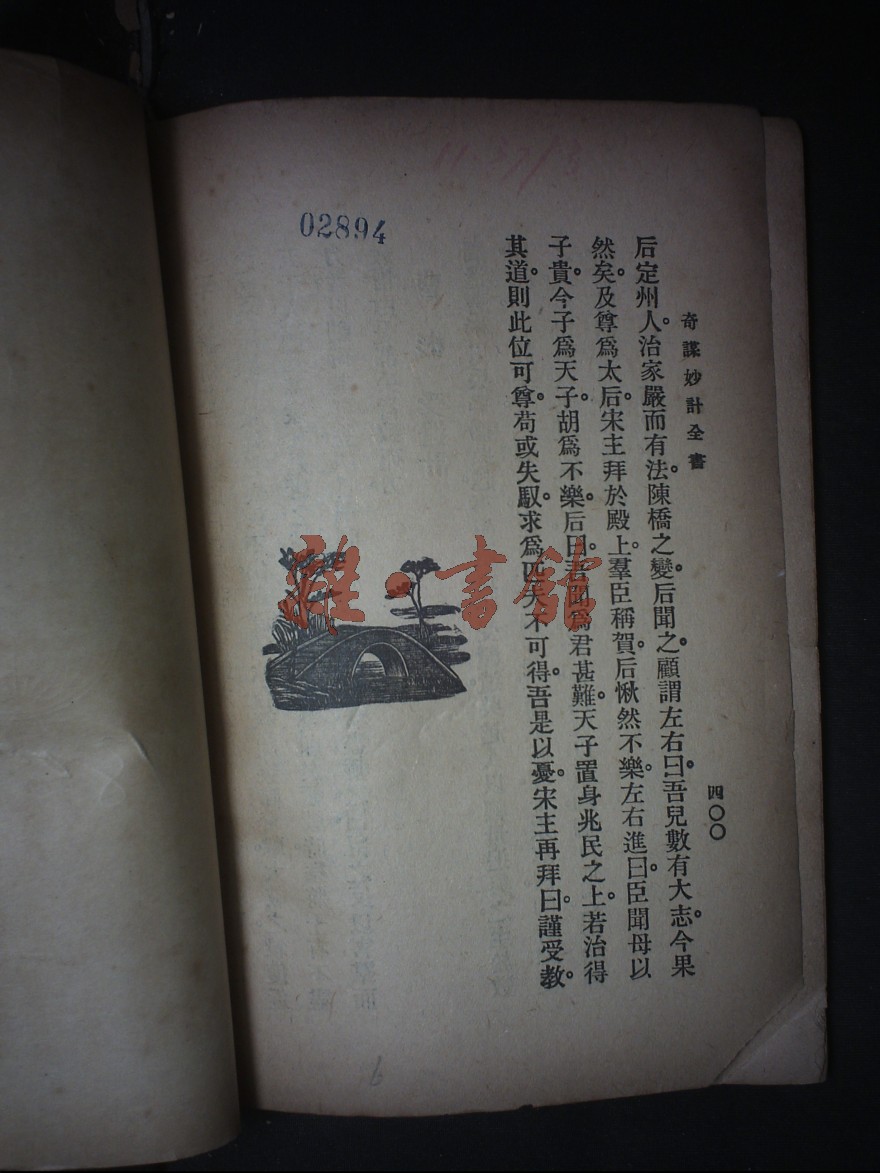 奇謀妙計全書
四〇〇
后定州人。治家嚴而有法。陳橋之變。后聞之。顧謂左右曰。吾兒數有大志。今果
然矣。及尊爲太后。宋主拜於殿上。羣臣稱賀。后愀然不樂。左右進曰。臣聞母以
子貴。今子爲天子。胡爲不樂。后曰。吾聞爲君甚難。天子置身兆民之上。若治得
其道。則此位可尊。苟或失馭。求爲匹夫不可得。吾是以憂。宋主再拜曰。謹受教。
02894
雜·書館